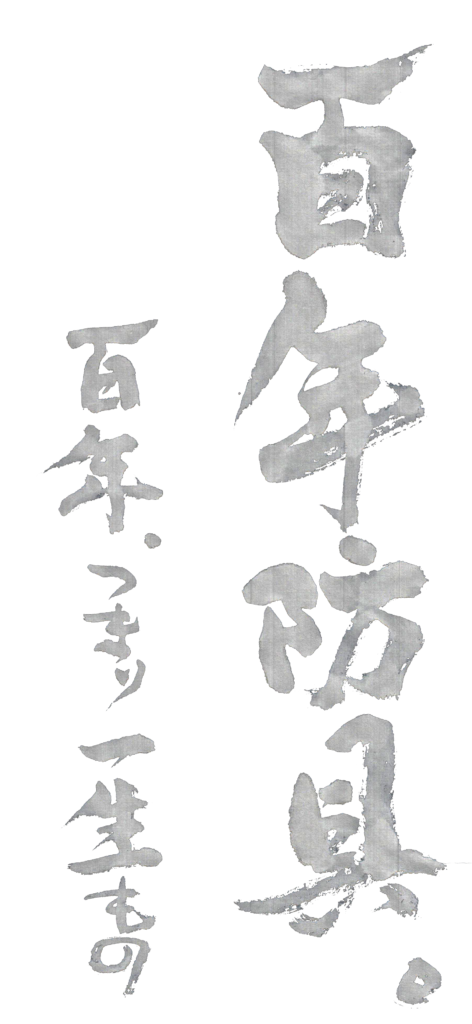 百年防具。
百年、つまり一生もの